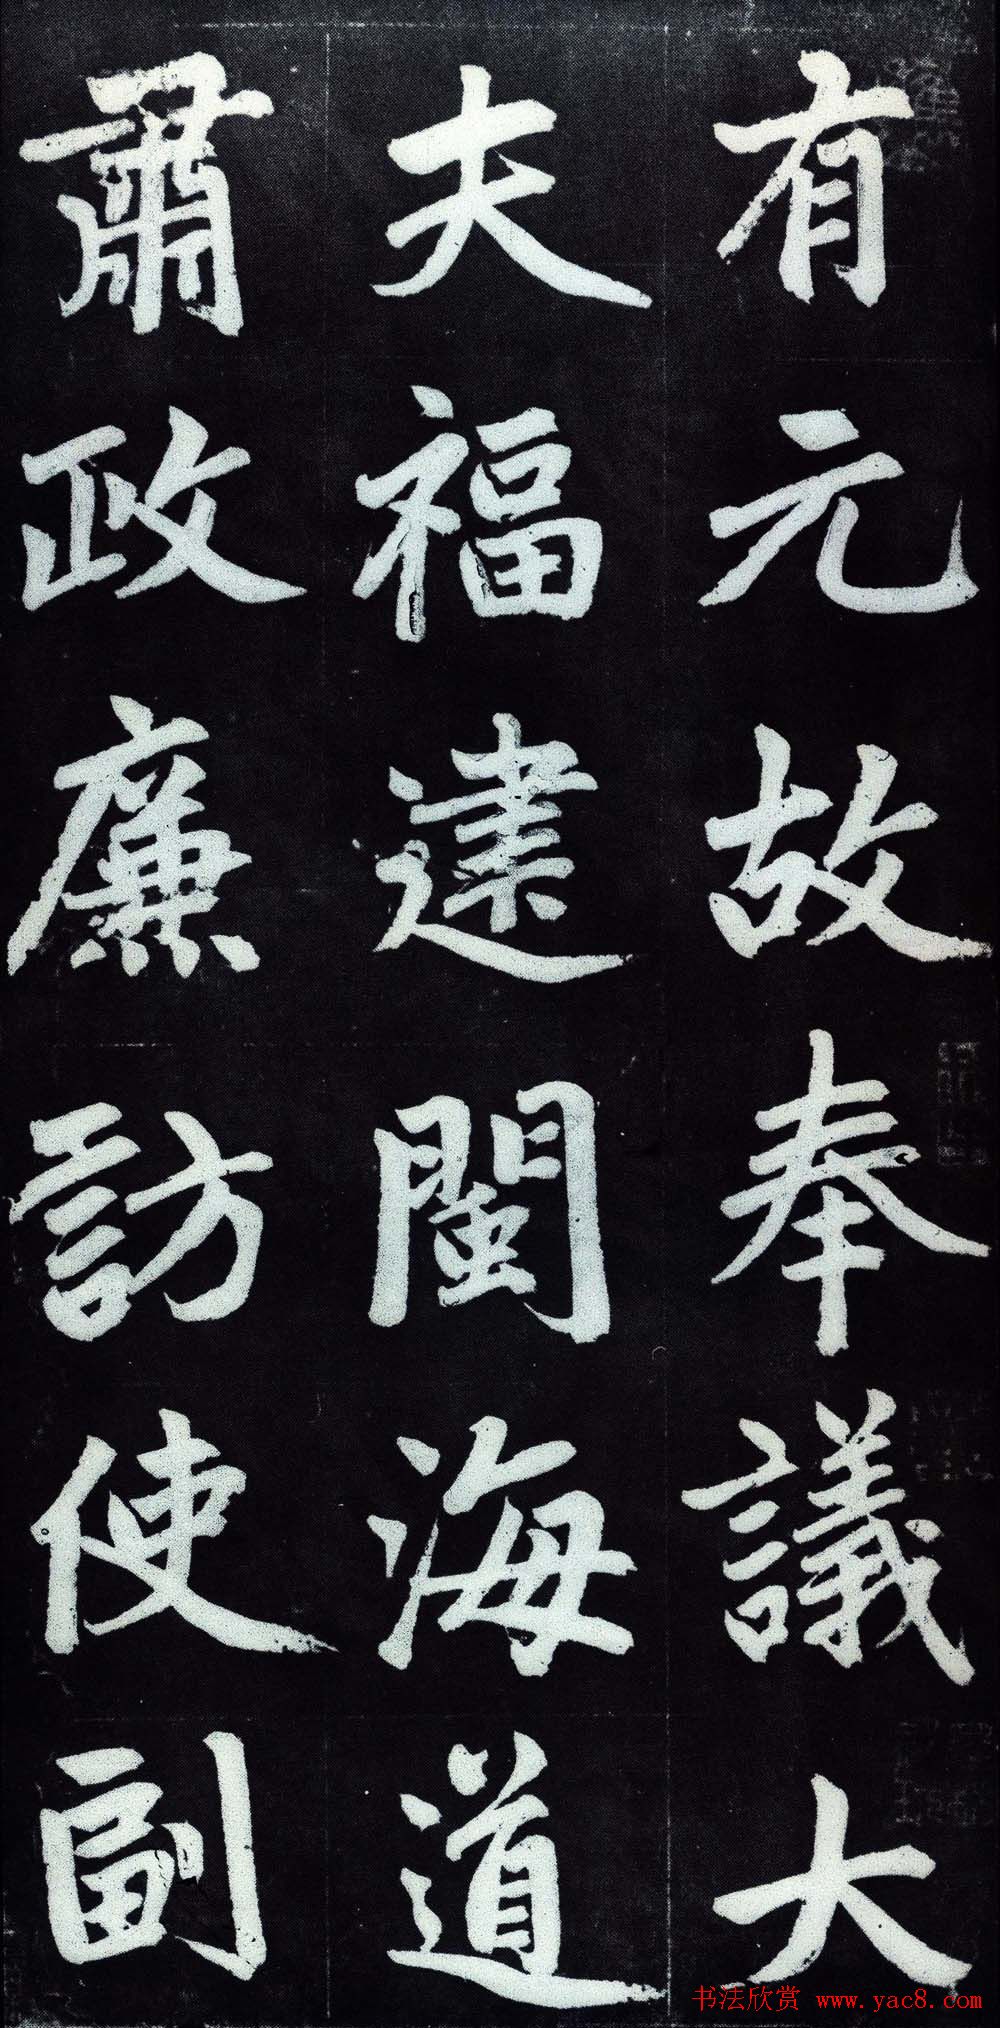 有元故奉議大
夫福建閩海道
肅政廉訪使副
书法欣赏 www.yac8.com